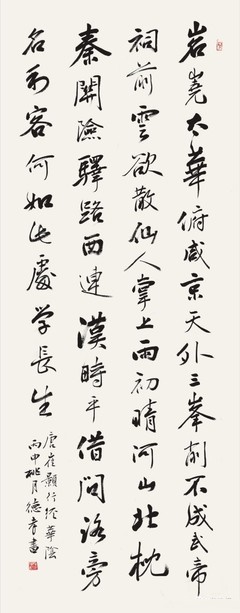 岧嶤太華俯咸京天外三峯削不成武帝
祠前雲欲散仙人掌上雨初晴河山北枕
秦關險驛路西連漢時平借問路旁
名利客何如此處学長生
唐崔顥行經華陰
丙申桃月德孝書